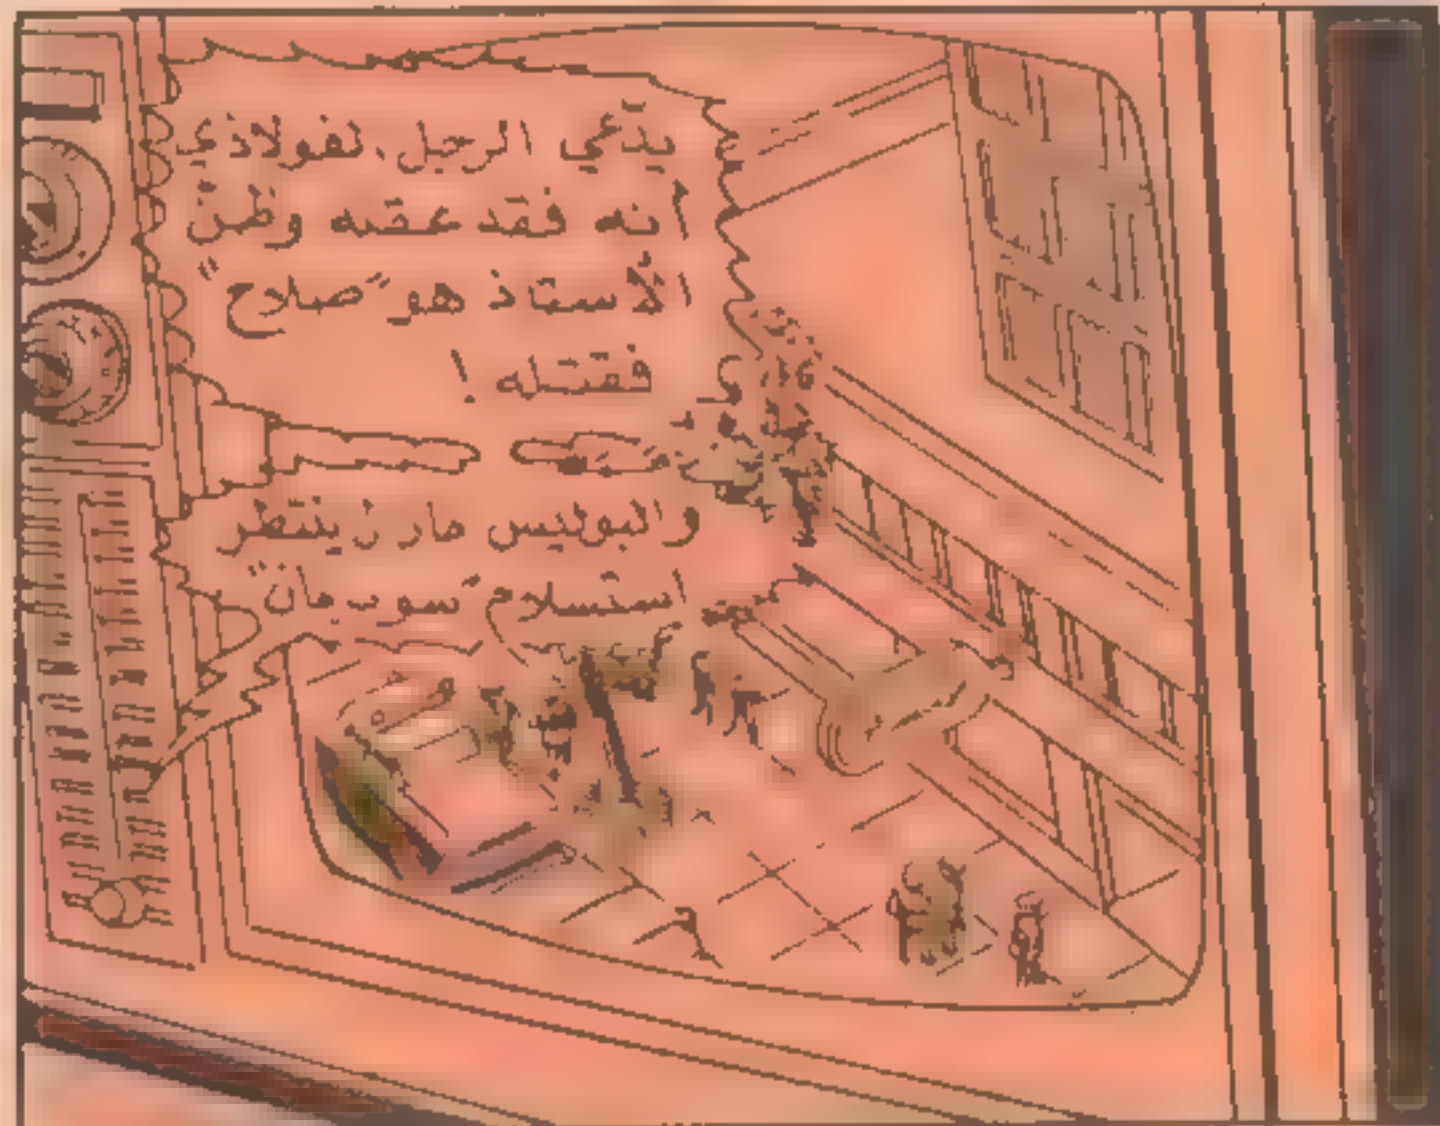 يدّعي الرجل الفولاذي
أنه فقد عقله وظنّ
الأستاذ هو "صلاح"
فقتله !
والبوليس مازال ينتظر
استسلام "سوبرمان"